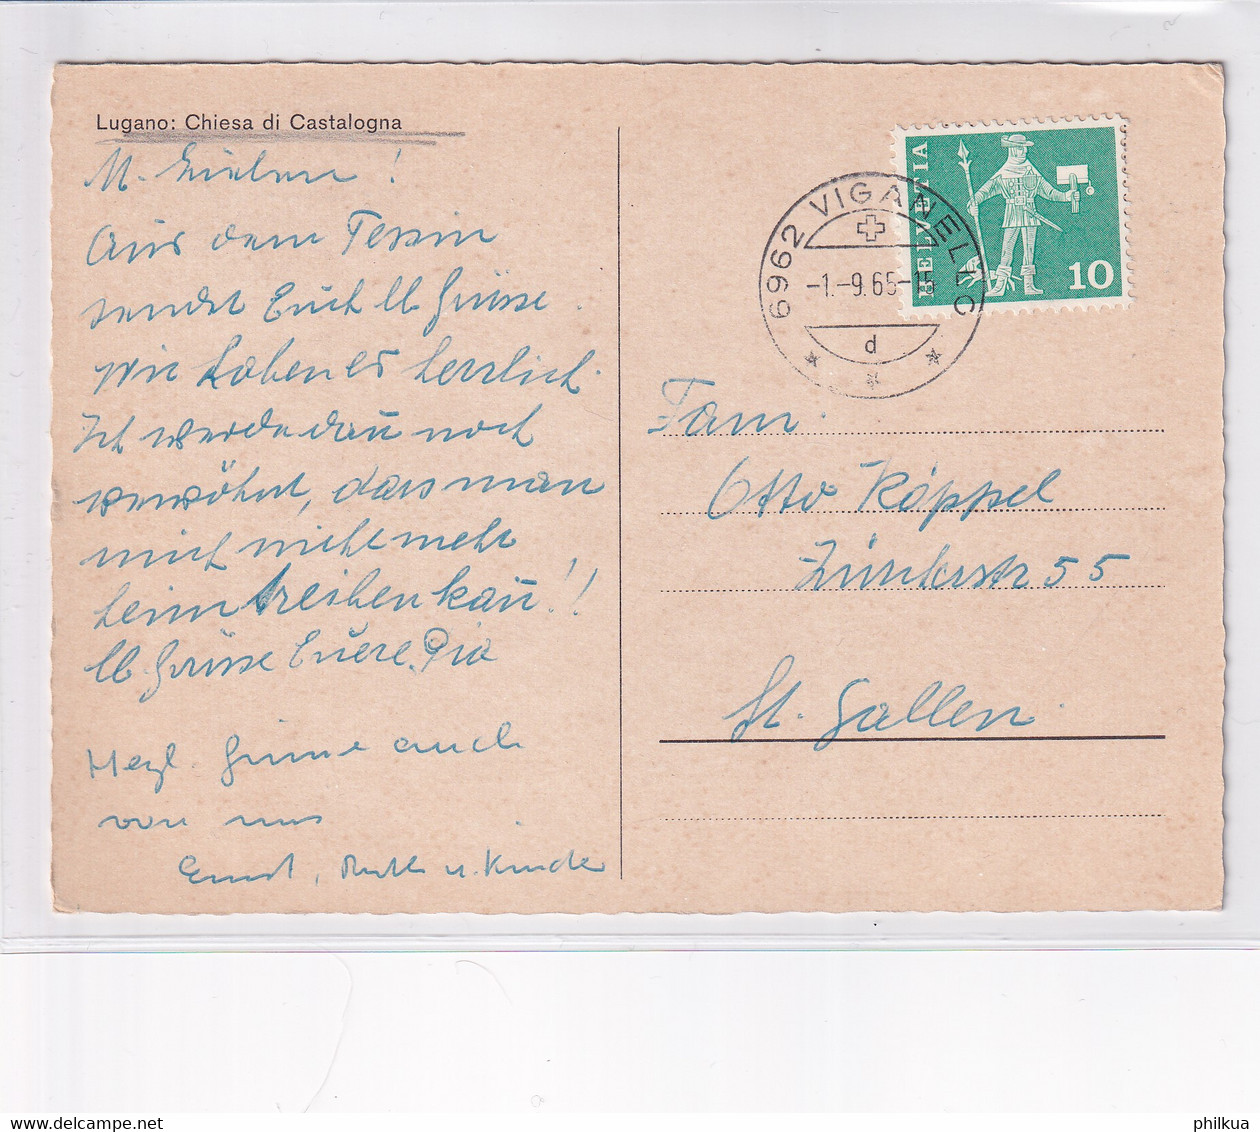 Lugano: Chiesa di Castalogna
M. Lieben!
Aus dem Tessin
sendet Euch lb Grüsse.
Wir haben es herrlich.
Ich werde dañ noch
verwöhnt, dass man
mich nicht mehr
heim treiben kañ!!
lb Grüsse Euere Pia
Herzl. Grüsse auch
von uns
Ernst, Ruth u. Kinder
6962 VIGANELLO
-1.-9.65-15
d
HELVETIA
10
Fam.
Otto Köppel
Zürcherstr 55
St. Gallen.
philkua